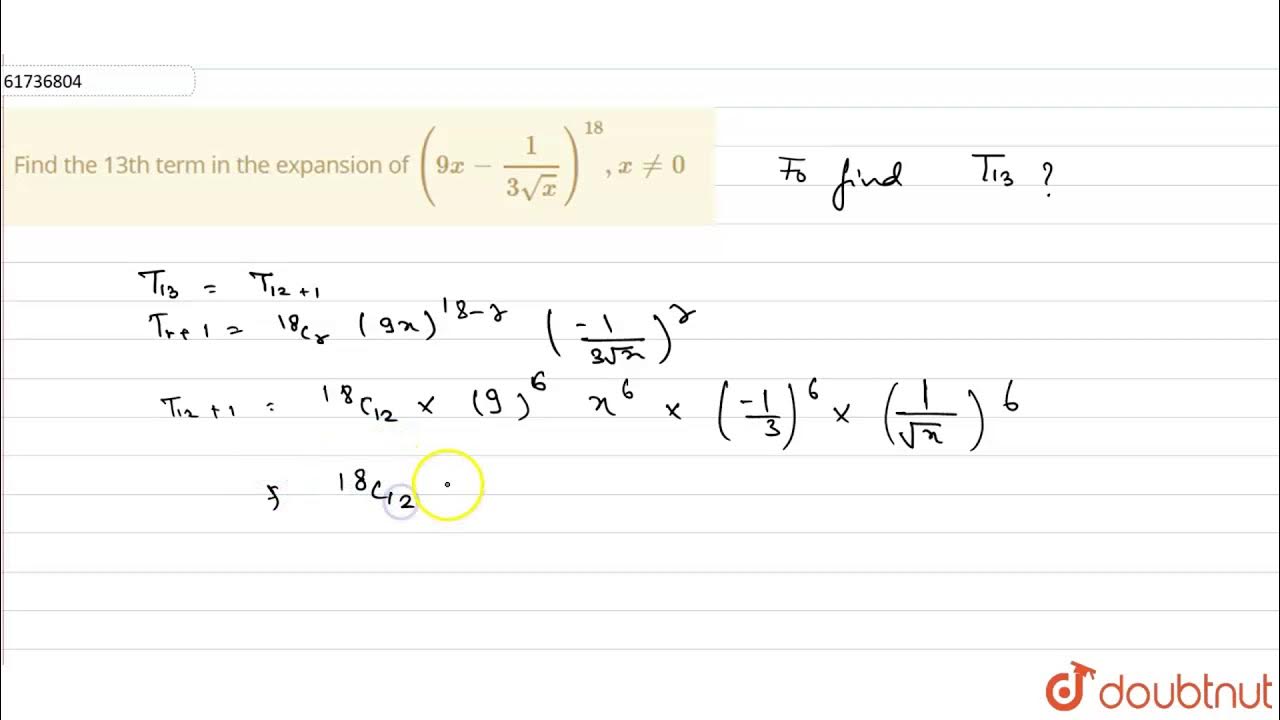 61736804
Find the 13th term in the expansion of (9x − 1/(3√x))^18, x ≠ 0
To find T13 ?
T13 = T12+1
Tr+1 = 18Cr (9x)^18-r (-1/(3√x))^r
T12+1 = 18C12 × (9)^6 x^6 × (-1/3)^6 × (1/√x)^6
18C12
doubtnut